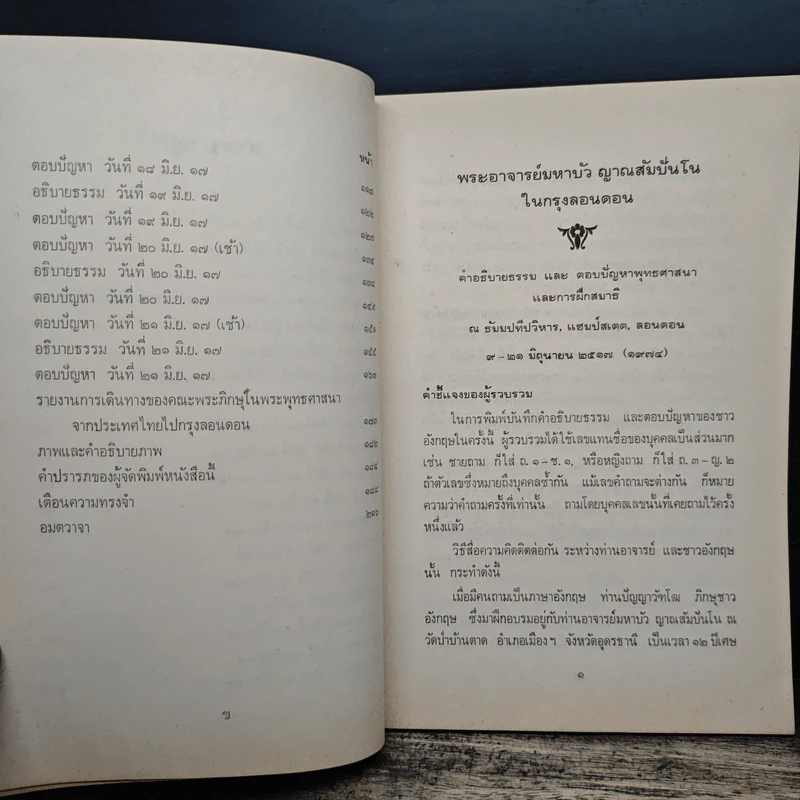 หน้า
ตอบปัญหา วันที่ ๑๘ มิ.ย. ๑๗ ๑๑๗
อธิบายธรรม วันที่ ๑๙ มิ.ย. ๑๗ ๑๒๒
ตอบปัญหา วันที่ ๑๙ มิ.ย. ๑๗ ๑๒๗
ตอบปัญหา วันที่ ๒๐ มิ.ย. ๑๗ (เช้า) ๑๓๔
อธิบายธรรม วันที่ ๒๐ มิ.ย. ๑๗ ๑๓๘
ตอบปัญหา วันที่ ๒๐ มิ.ย. ๑๗ ๑๔๙
ตอบปัญหา วันที่ ๒๑ มิ.ย. ๑๗ (เช้า) ๑๕๑
อธิบายธรรม วันที่ ๒๑ มิ.ย. ๑๗ ๑๕๕
ตอบปัญหา วันที่ ๒๑ มิ.ย. ๑๗
รายงานการเดินทางของคณะพระภิกษุในพระพุทธศาสนา
จากประเทศไทยไปกรุงลอนดอน ๑๗๓
ภาพและคำอธิบายภาพ ๑๘๒
คำปรารภของผู้จัดพิมพ์หนังสือนี้ ๑๘๔
เตือนความทรงจำ ๑๘๘
อมตวาจา ๒๑๖
ข
พระอาจารย์มหาบัว ญาณสัมปันโน
ในกรุงลอนดอน
คำอธิบายธรรม และ ตอบปัญหาพุทธศาสนา
และการฝึกสมาธิ
ณ ธัมมปทีปวิหาร, แฮมป์สเตด, ลอนดอน
๙ – ๒๑ มิถุนายน ๒๕๑๗ (๑๙๗๔)
คำชี้แจงของผู้รวบรวม
ในการพิมพ์บันทึกคำอธิบายธรรม และตอบปัญหาของชาว
อังกฤษในครั้งนี้ ผู้รวบรวมได้ใช้เลขแทนชื่อของบุคคลเป็นส่วนมาก
เช่น ชายถาม ก็ใส่ ถ. ๑ – ช. ๑, หรือหญิงถาม ก็ใส่ ถ. ๓ – ญ. ๒
ถ้าตัวเลขซึ่งหมายถึงบุคคลซ้ำกัน แม้เลขคำถามจะต่างกัน ก็หมาย
ความว่าคำถามครั้งที่เท่านั้น ถามโดยบุคคลเลขนั้นที่เคยถามไว้ครั้ง
หนึ่งแล้ว
วิธีสื่อความคิดติดต่อกัน ระหว่างท่านอาจารย์ และชาวอังกฤษ
นั้น กระทำดังนี้
เมื่อมีคนถามเป็นภาษาอังกฤษ ท่านปัญญาวัฑโฒ ภิกษุชาว
อังกฤษ ซึ่งมาฝึกอบรมอยู่กับท่านอาจารย์มหาบัว ญาณสัมปันโน ณ
วัดป่าบ้านตาด อำเภอเมืองฯ จังหวัดอุดรธานี เป็นเวลา ๑๒ ปีเศษ
๑